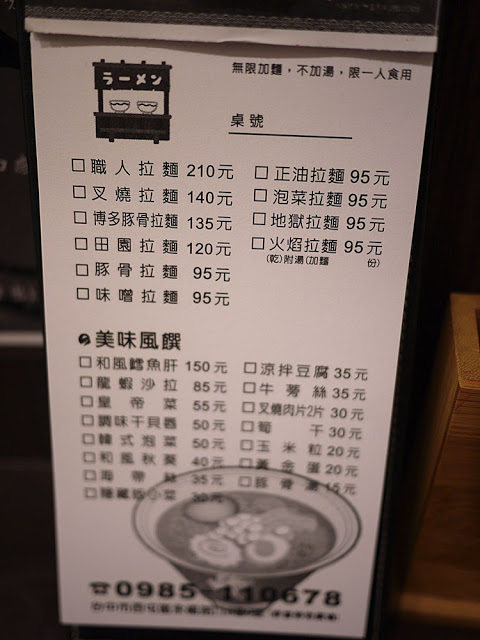 ラーメン
無限加麵，不加湯，限一人食用
桌號
□職人拉麵 210元
□叉燒拉麵 140元
□博多豚骨拉麵 135元
□田園拉麵 120元
□豚骨拉麵 95元
□味噌拉麵 95元
□正油拉麵 95元
□泡菜拉麵 95元
□地獄拉麵 95元
□火焰拉麵 95元
(乾)附湯(加麵 份)
美味風饌
□和風鱈魚肝 150元
□龍蝦沙拉 85元
□皇帝菜 55元
□調味干貝唇 50元
□韓式泡菜 50元
□和風秋葵 40元
□海帝絲 35元
□隱藏版小菜 30元
□涼拌豆腐 35元
□牛蒡絲 35元
□叉燒肉片2片 30元
□筍干 30元
□玉米粒 20元
□黃金蛋 20元
□豚骨湯 15元
☎0985-110678